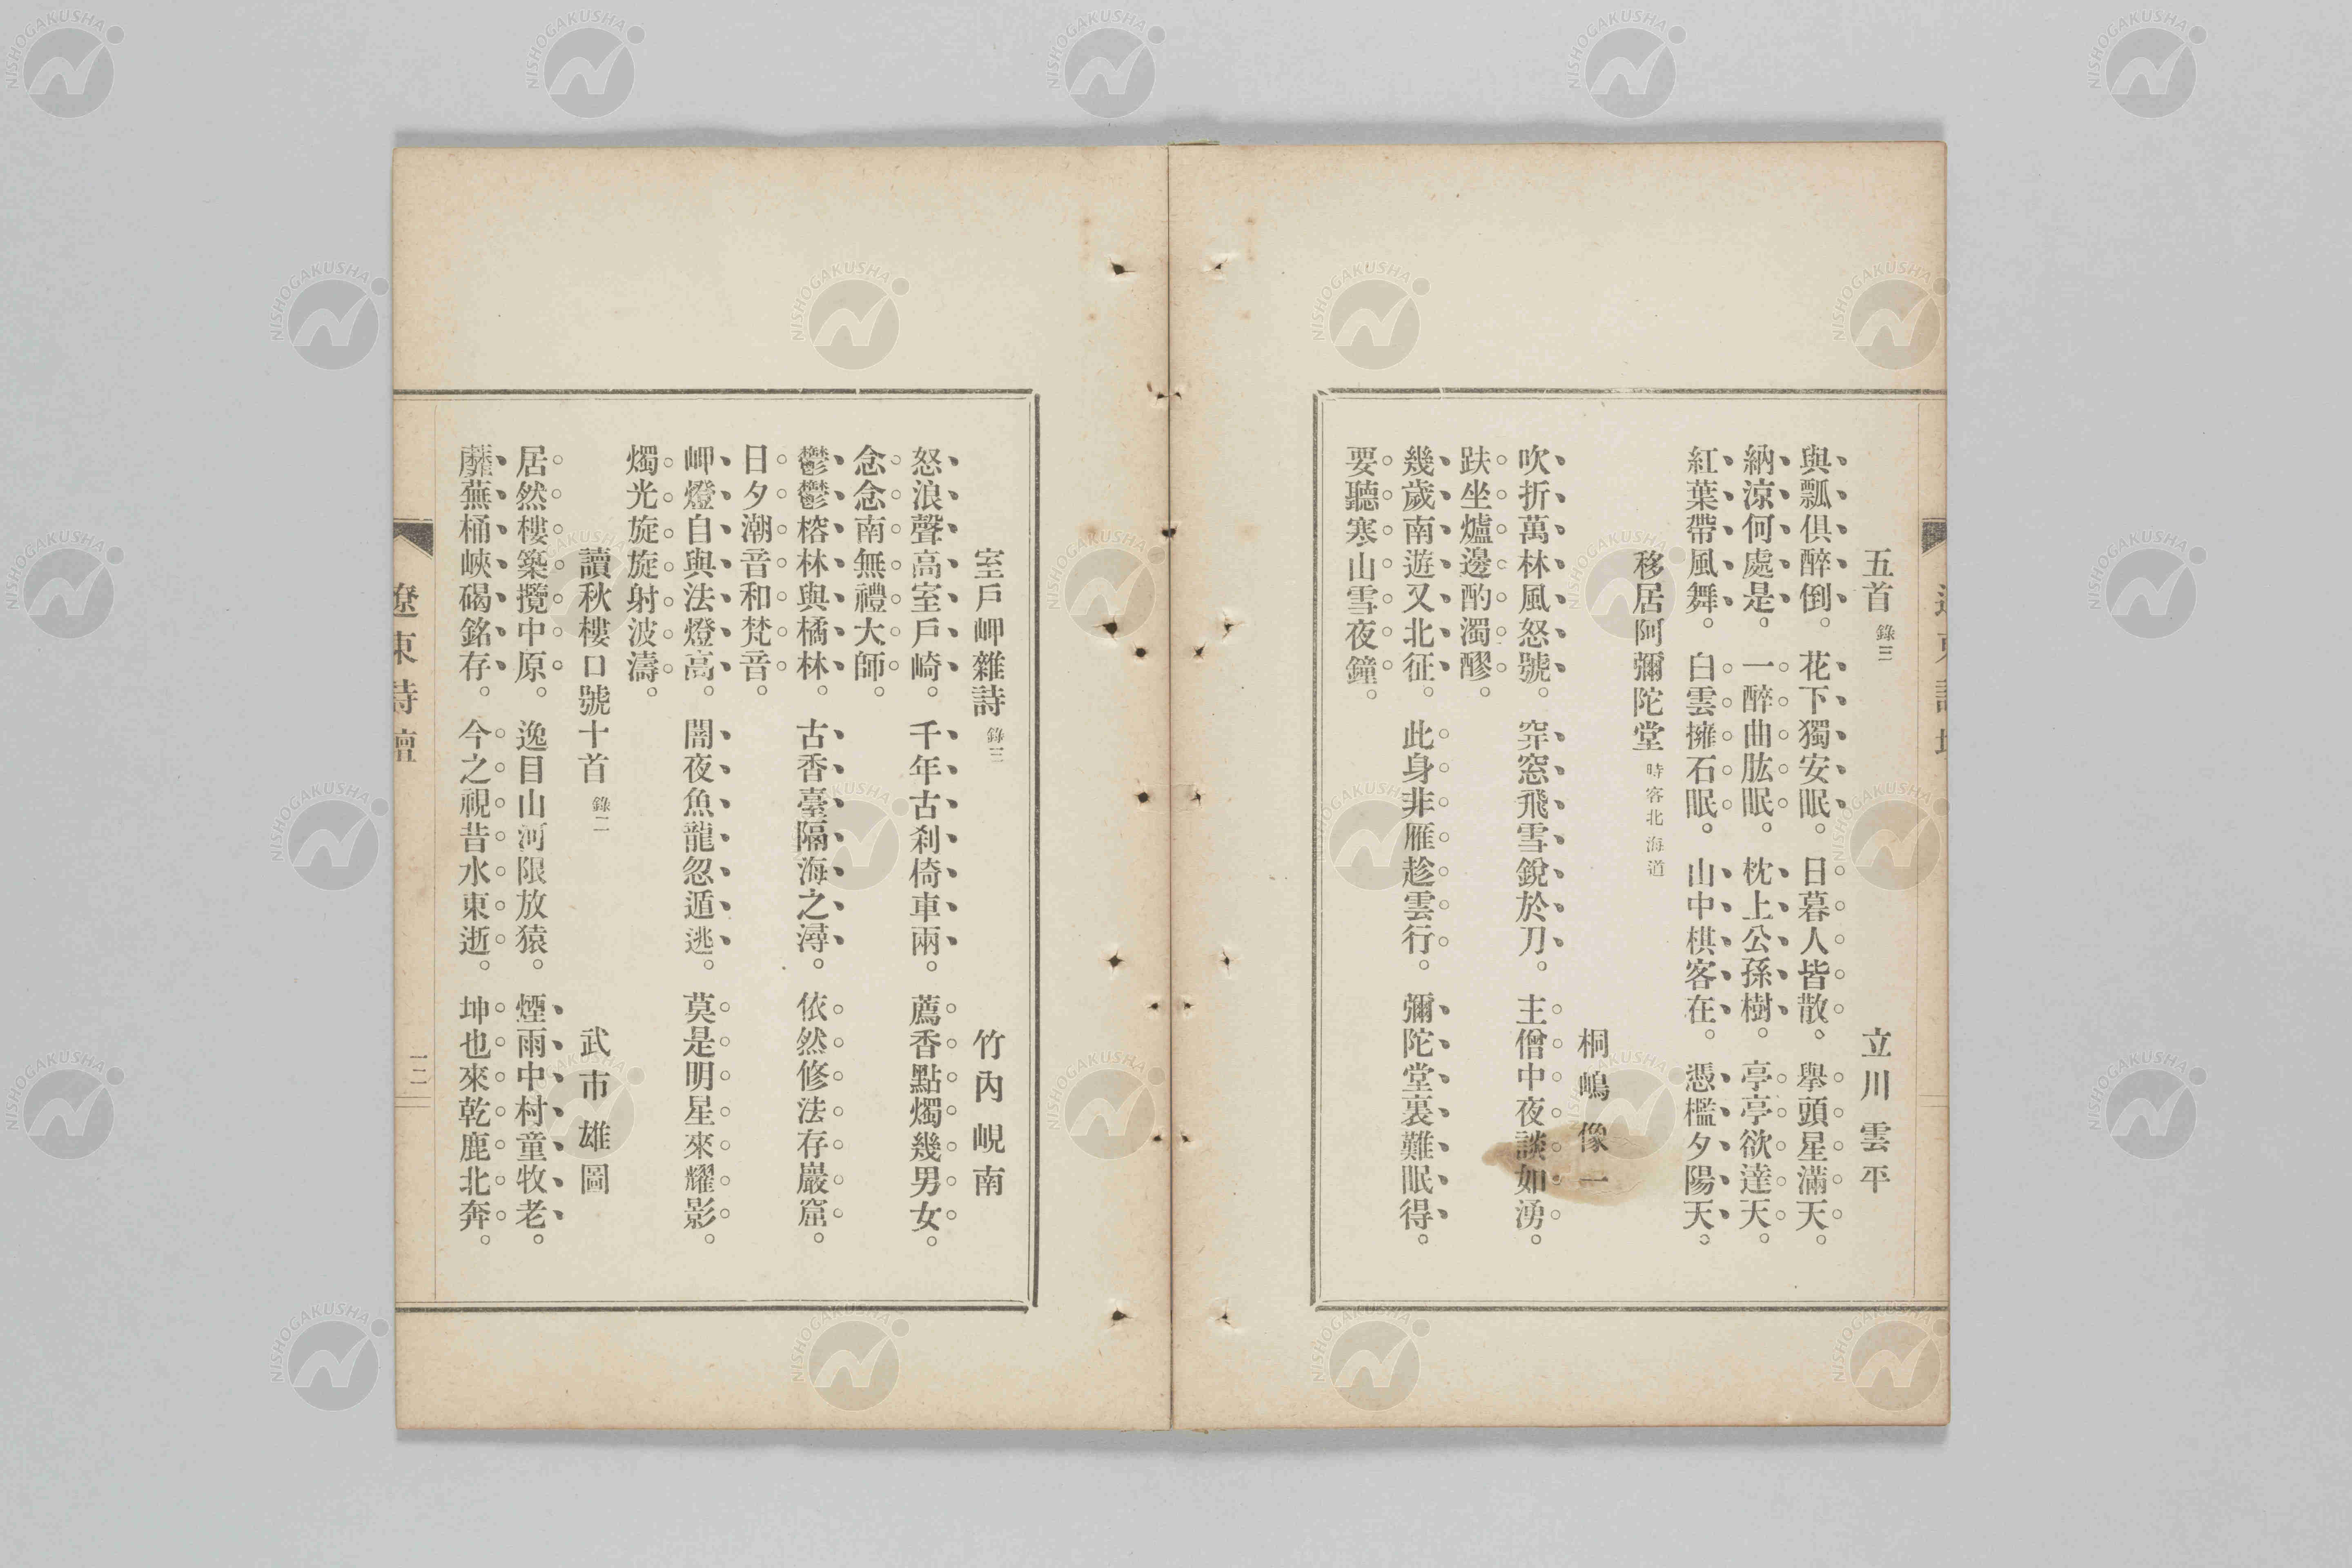 五首 錄三 立川雲平
與瓢俱醉倒。花下獨安眠。日暮人皆散。舉頭星滿天。
納涼何處是。一醉曲肱眠。枕上公孫樹。亭亭欲達天。
紅葉帶風舞。白雲擁石眠。山中棋客在。憑檻夕陽天。
移居阿彌陀堂 時客北海道
桐嶋像一
吹折萬林風怒號。穽窓飛雪銳於刀。主僧中夜談如湧。
趺坐爐邊酌濁醪。
幾歲南遊又北征。此身非雁趁雲行。彌陀堂裏難眠得。
要聽寒山雪夜鐘。
室戶岬雜詩 錄三 竹內峴南
怒浪聲高室戶崎。千年古刹倚車兩。薦香點燭幾男女。
念念南無禮大師。
鬱鬱榕林與橘林。古香臺隔海之潯。依然修法存巖窟。
日夕潮音和梵音。
岬燈自與法燈高。闇夜魚龍忽遁逃。莫是明星來耀影。
燭光旋旋射波濤。
讀秋樓口號十首 錄二 武市雄圖
居然樓築攬中原。逸目山河限放猿。煙雨中村童牧老。
蘼蕪桶峽碣銘存。今之視昔水東逝。坤也來乾鹿北奔。
遼東詩壇
一二
NISHOGAKUSHA